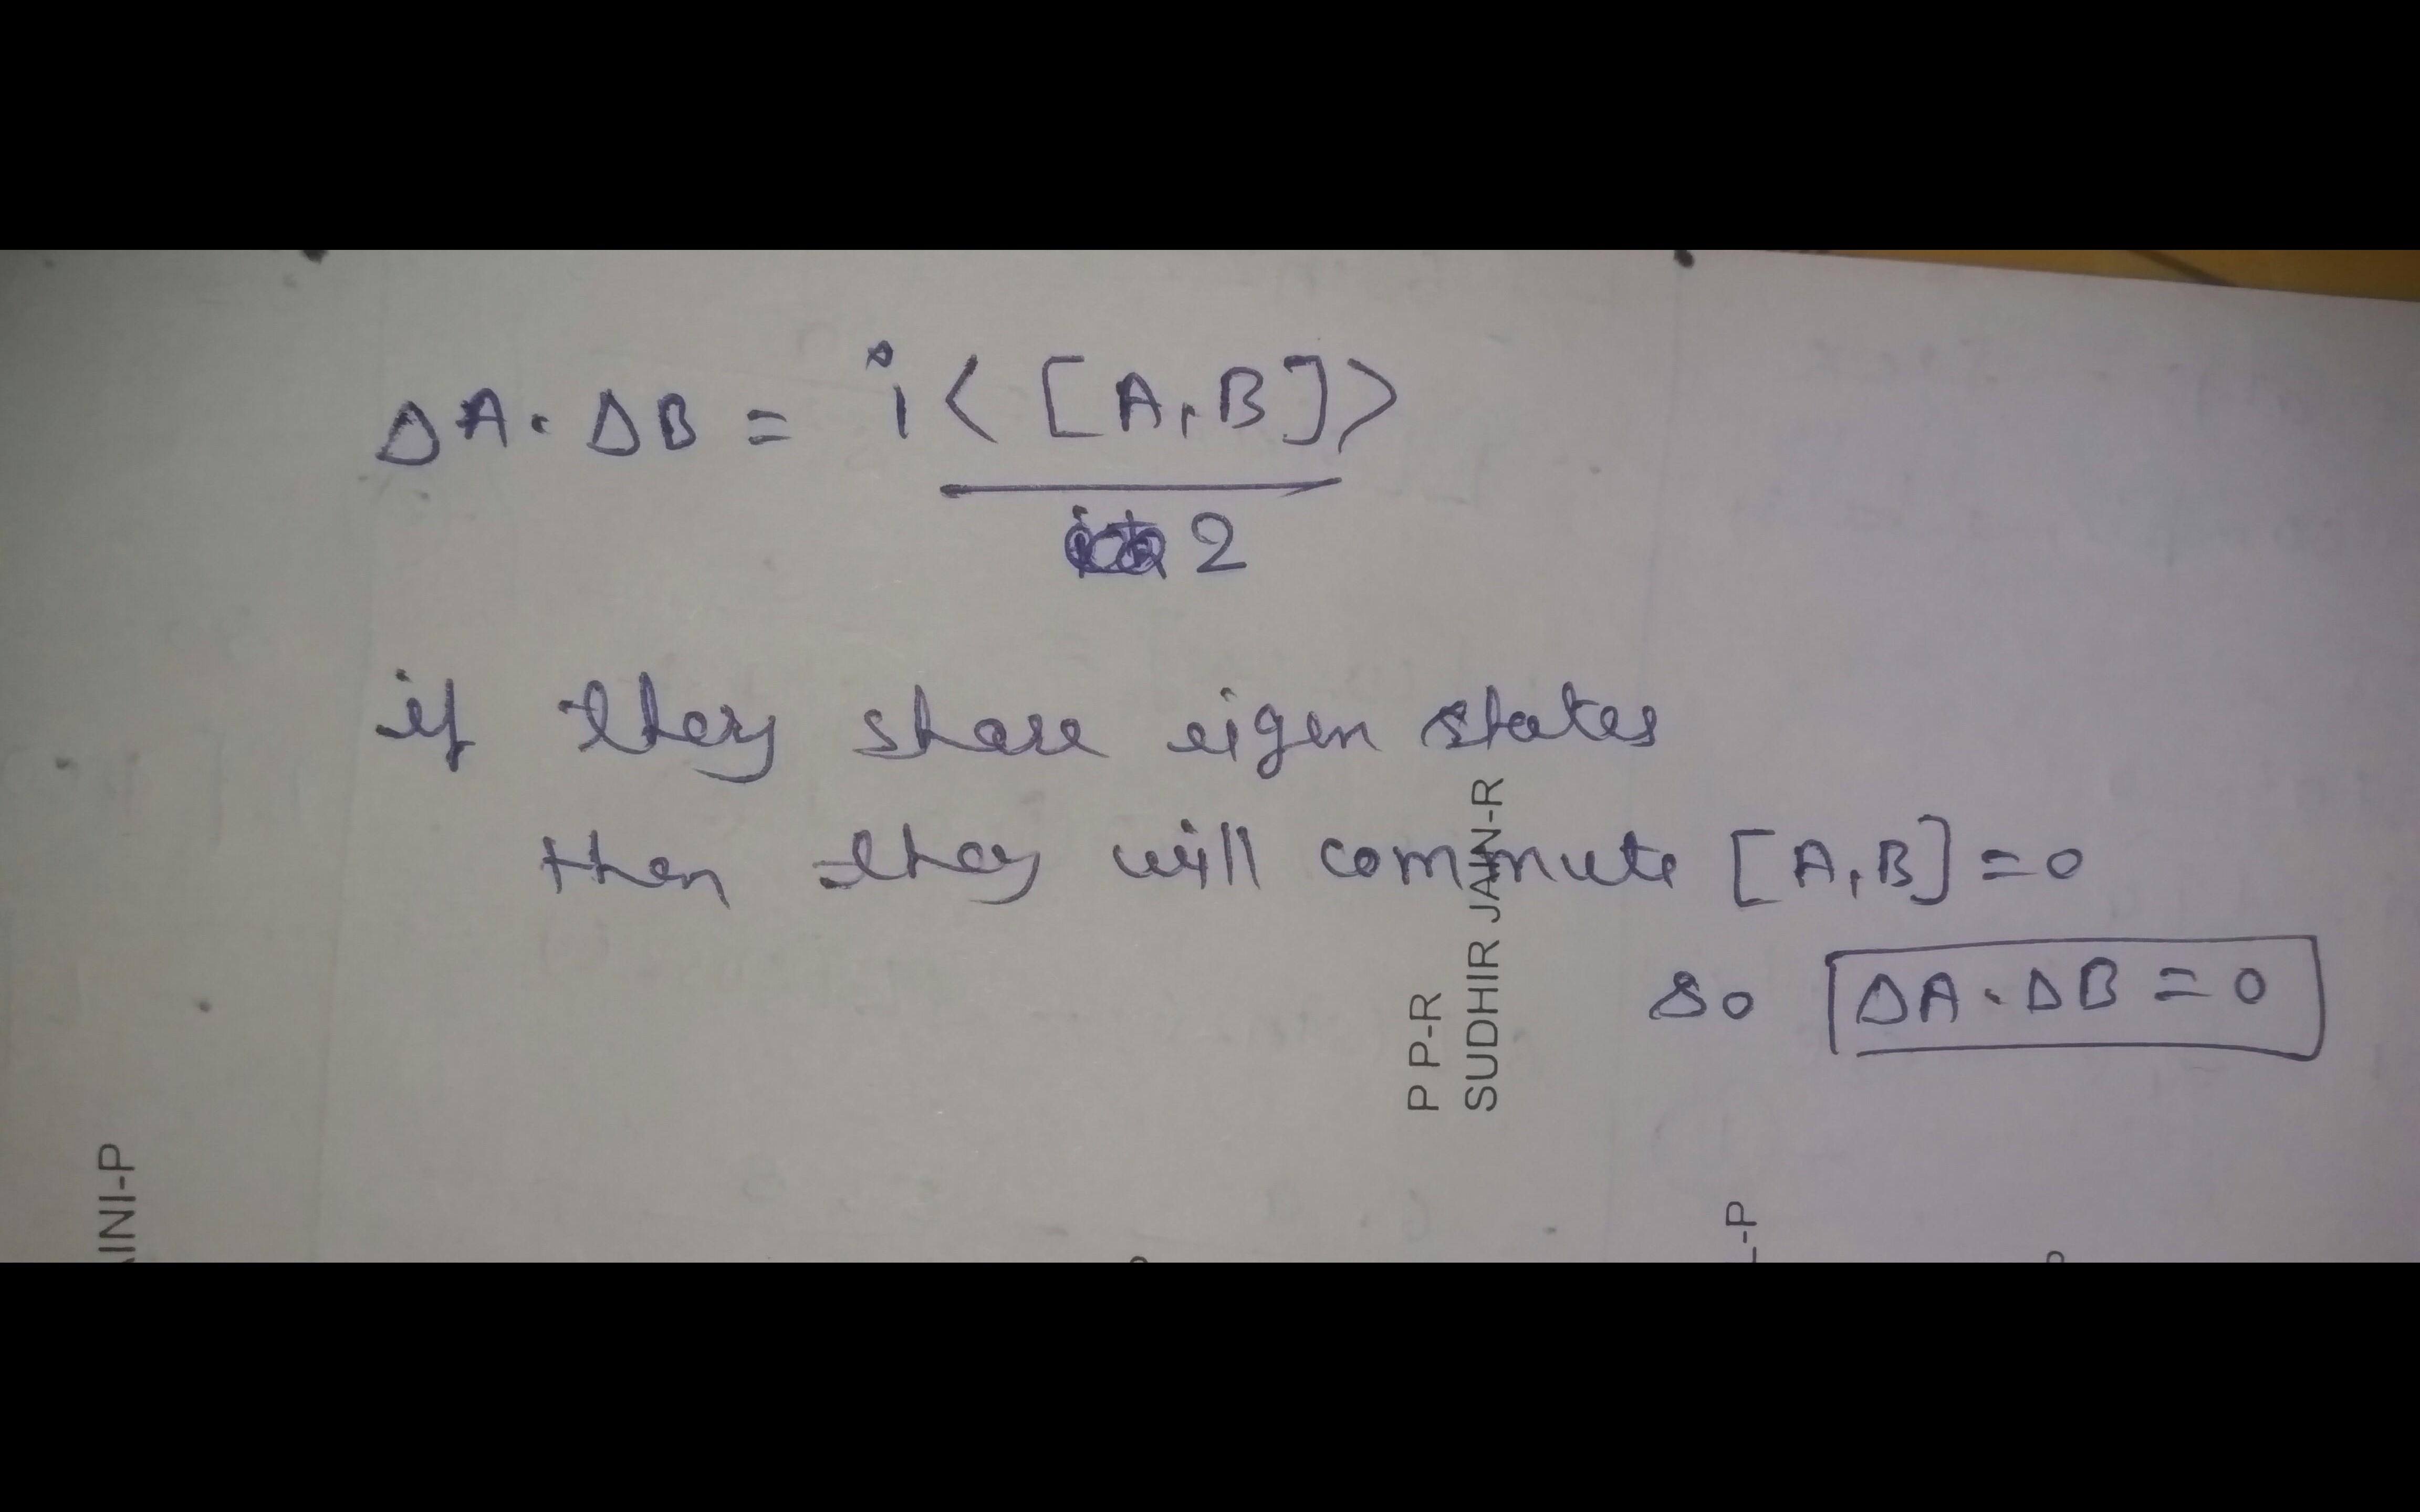 ΔA · ΔB = i<[A,B]>
2
if they share eigen states
then they will commute [A,B] = 0
so ΔA · ΔB = 0
P P-R
SUDHIR JAIN-R
INI-P
-P